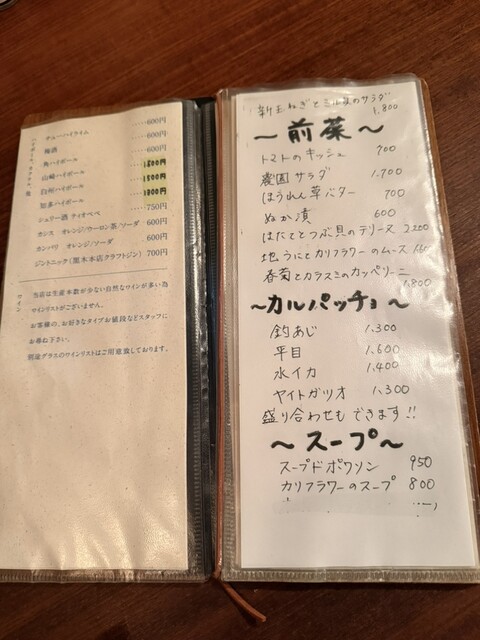 ハイボール、カクテル、他
チューハイライム ‥‥600円
梅酒 ‥‥600円
角ハイボール ‥‥600円
山崎ハイボール 1800円
白州ハイボール 1500円
知多ハイボール 1000円
シェリー酒 ティオペペ ‥‥750円
カシス オレンジ/ウーロン茶/ソーダ 600円
カンパリ オレンジ/ソーダ 600円
ジントニック(黒木本店クラフトジン) 700円
ワイン
当店は生産本数が少ない自然なワインが多い為
ワインリストがございません。
お客様の、お好きなタイプお値段などスタッフに
お尋ね下さい。
別途グラスのワインリストはご用意致しております。
新玉ねぎとミル貝のサラダ
1.800
~前菜~
トマトのキッシュ 700
農園サラダ 1.700
ほうれん草バター 700
ぬか漬 600
ほたてとつぶ貝のテリーヌ 2200
地うにとカリフラワーのムース
春菊とカラスミのカッペリーニ
1.800
~カルパッチョ~
釣あじ 1.300
平目 1.600
水イカ 1.400
ヤイトガツオ 1.300
盛り合わせもできます!!
~スープ~
スープドポワソン 950
カリフラワーのスープ 800